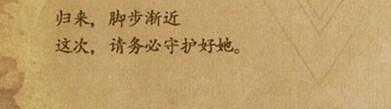 归来，脚步渐近
这次，请务必守护好她。